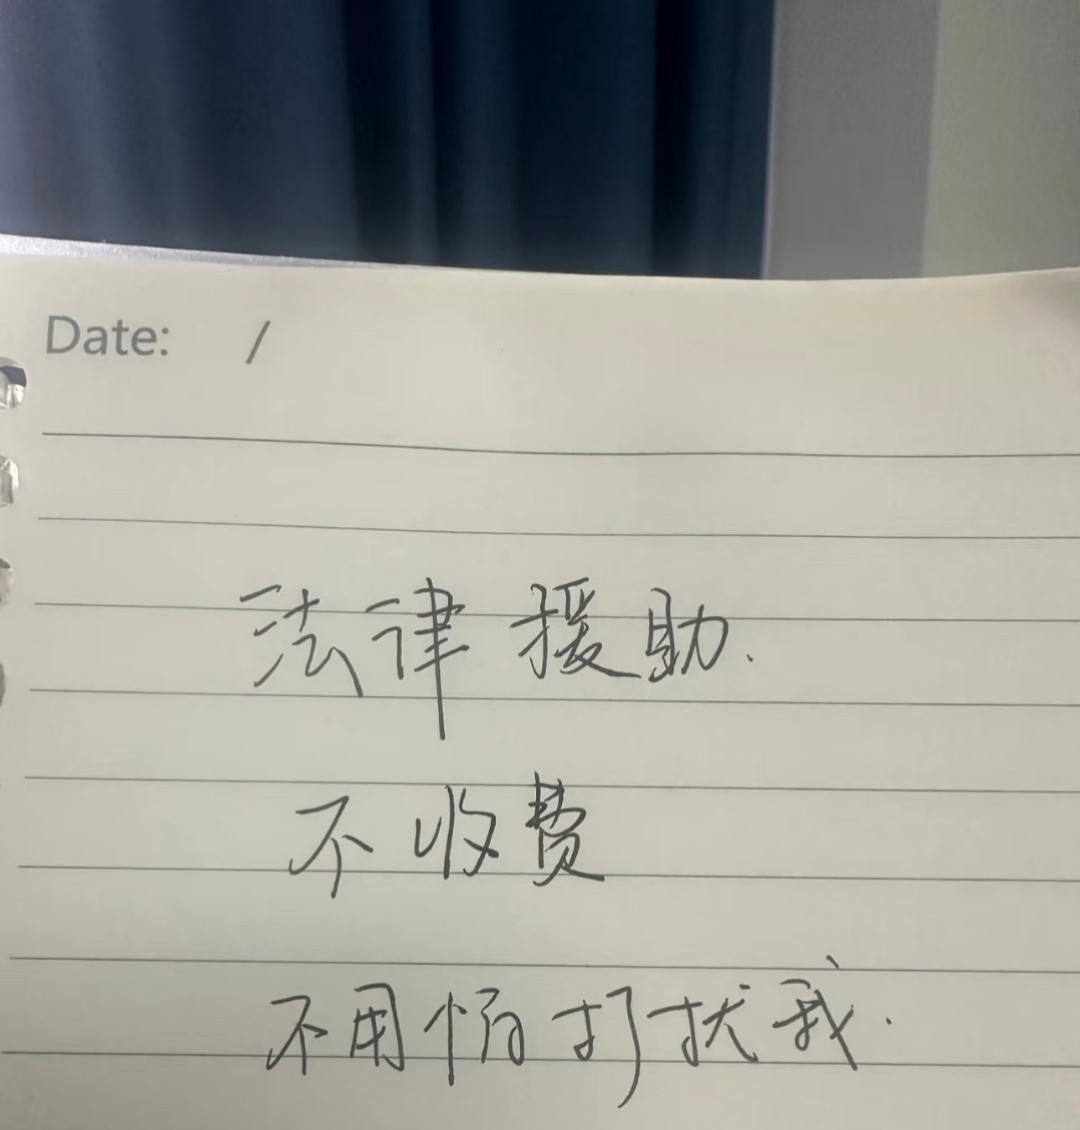 Date: /
法律援助.
不收费
不用怕打扰我.